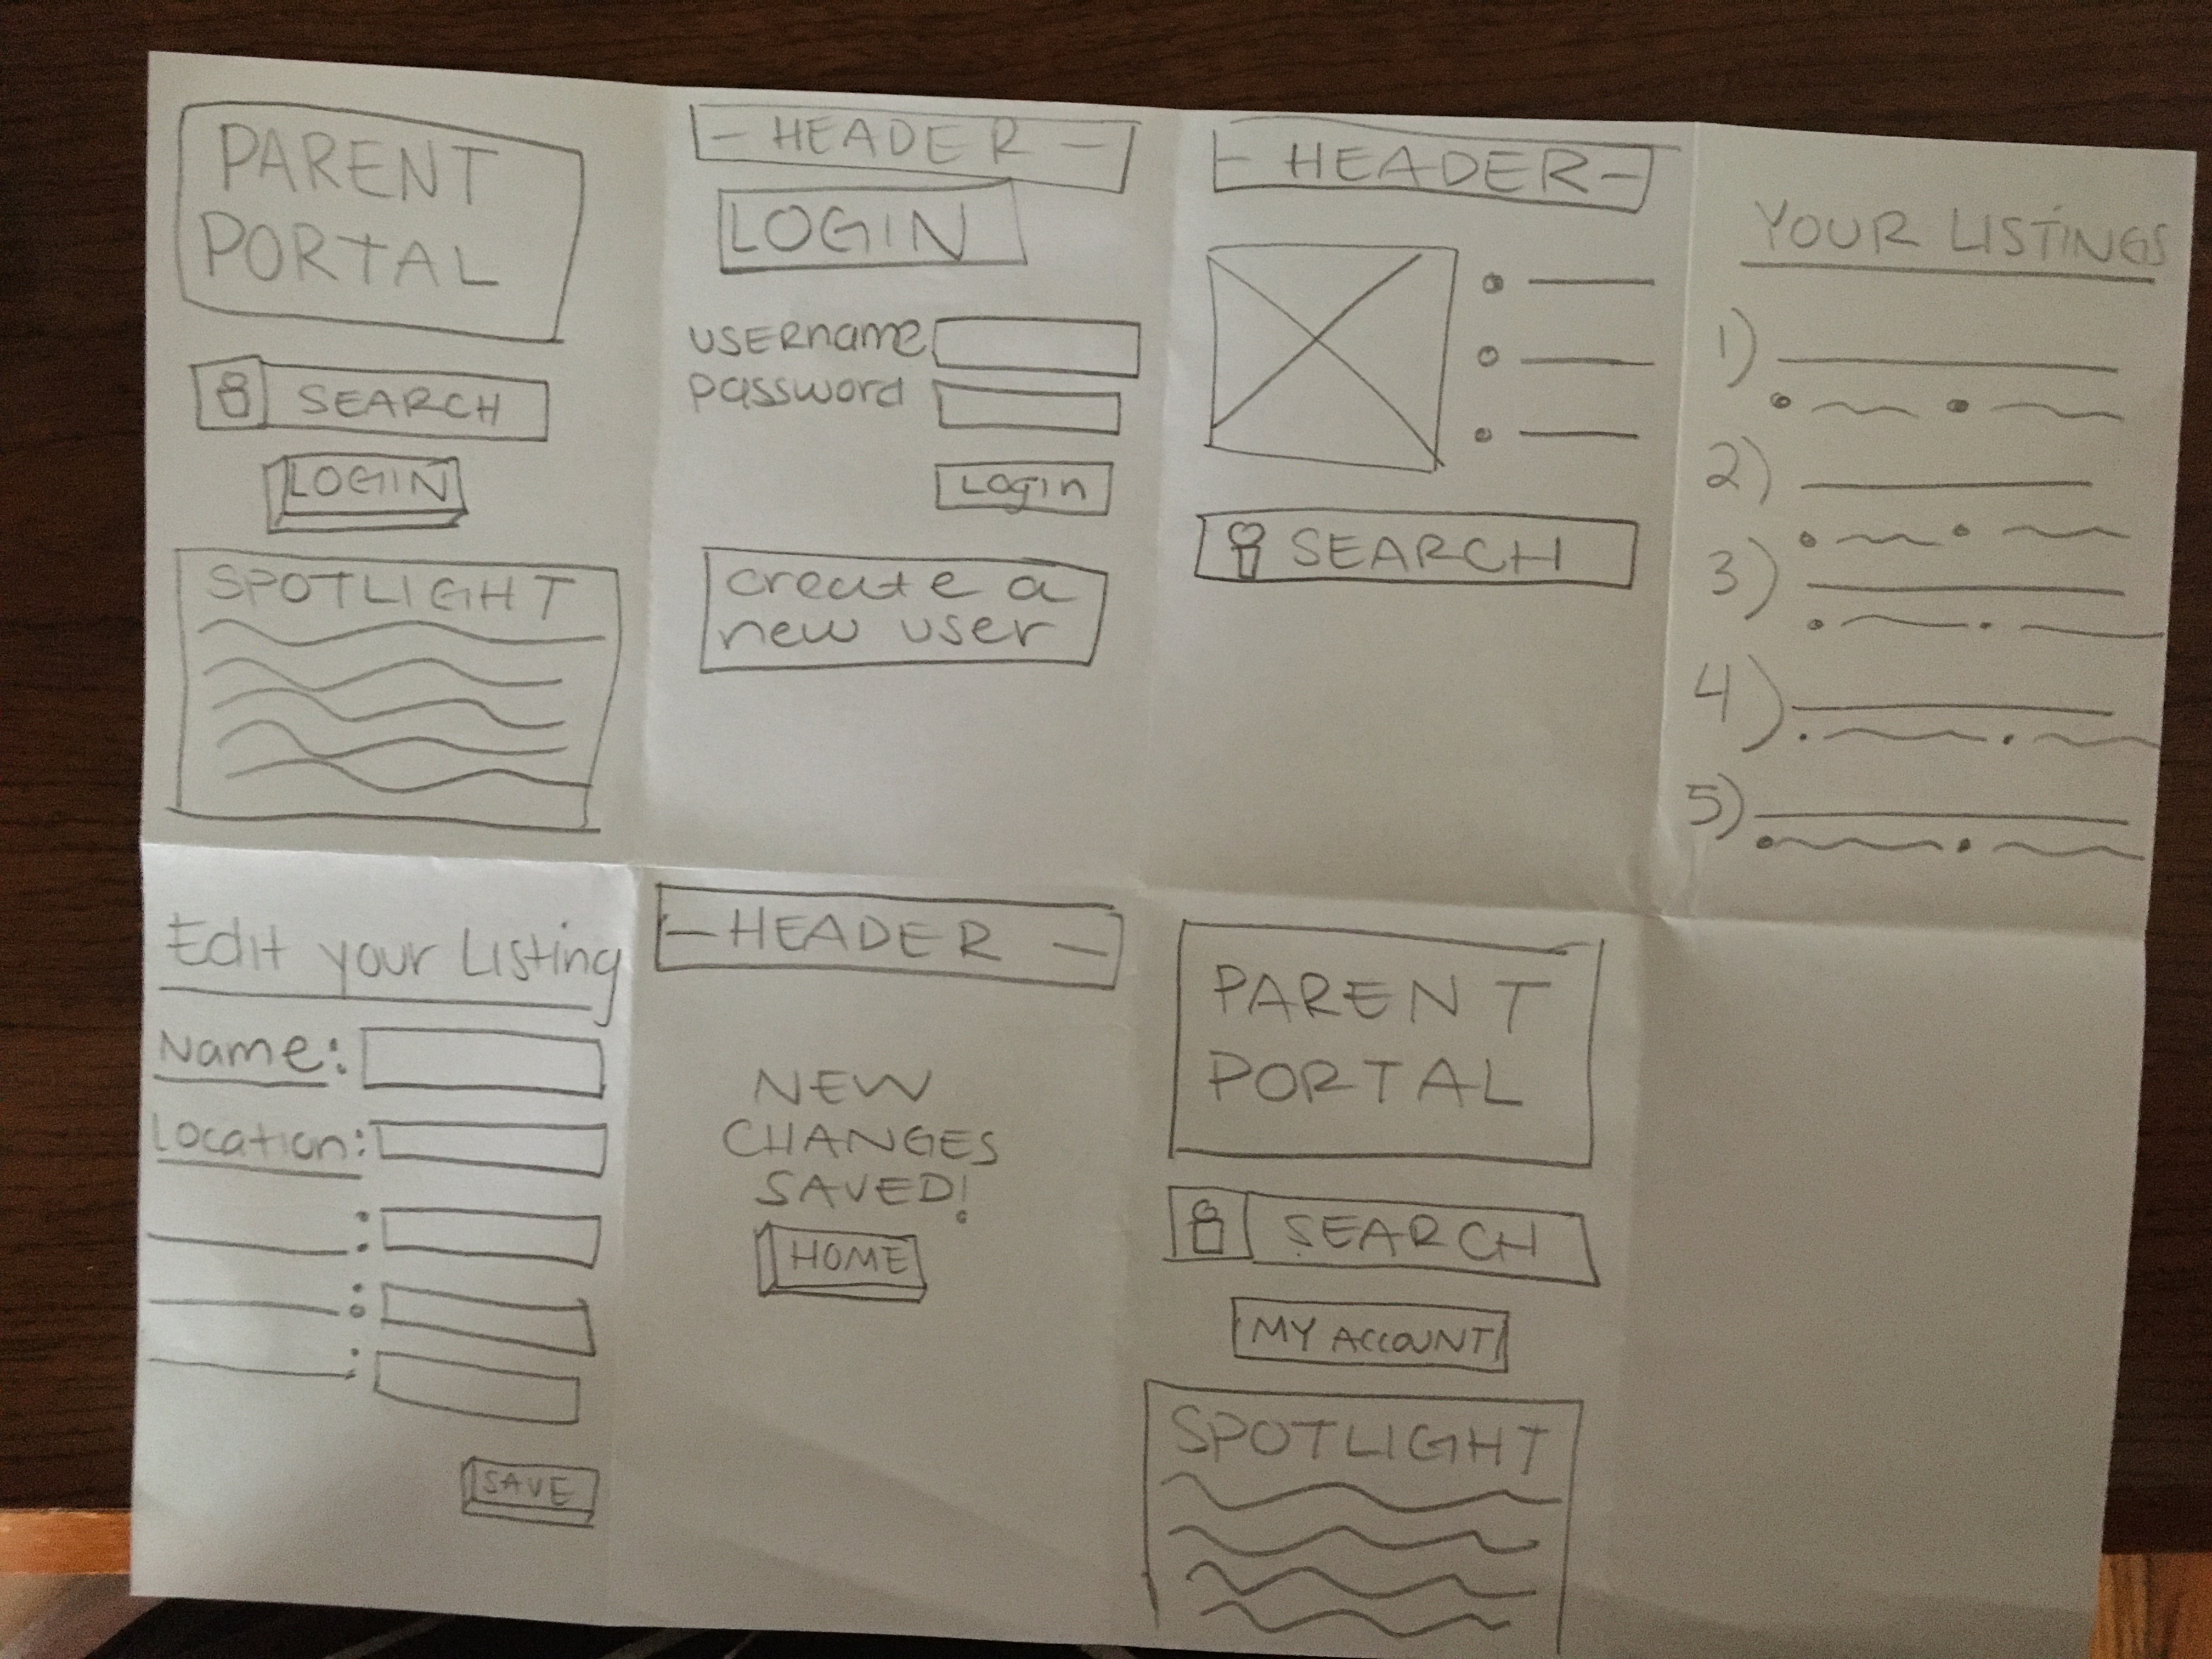 PARENT
PORTAL
SEARCH
LOGIN
SPOTLIGHT
- HEADER -
LOGIN
username
password
Login
create a
new user
- HEADER -
SEARCH
YOUR LISTINGS
1)
2)
3)
4)
5)
Edit your Listing
Name:
Location:
:
:
:
SAVE
- HEADER -
NEW
CHANGES
SAVED!
HOME
PARENT
PORTAL
SEARCH
MY ACCOUNT
SPOTLIGHT